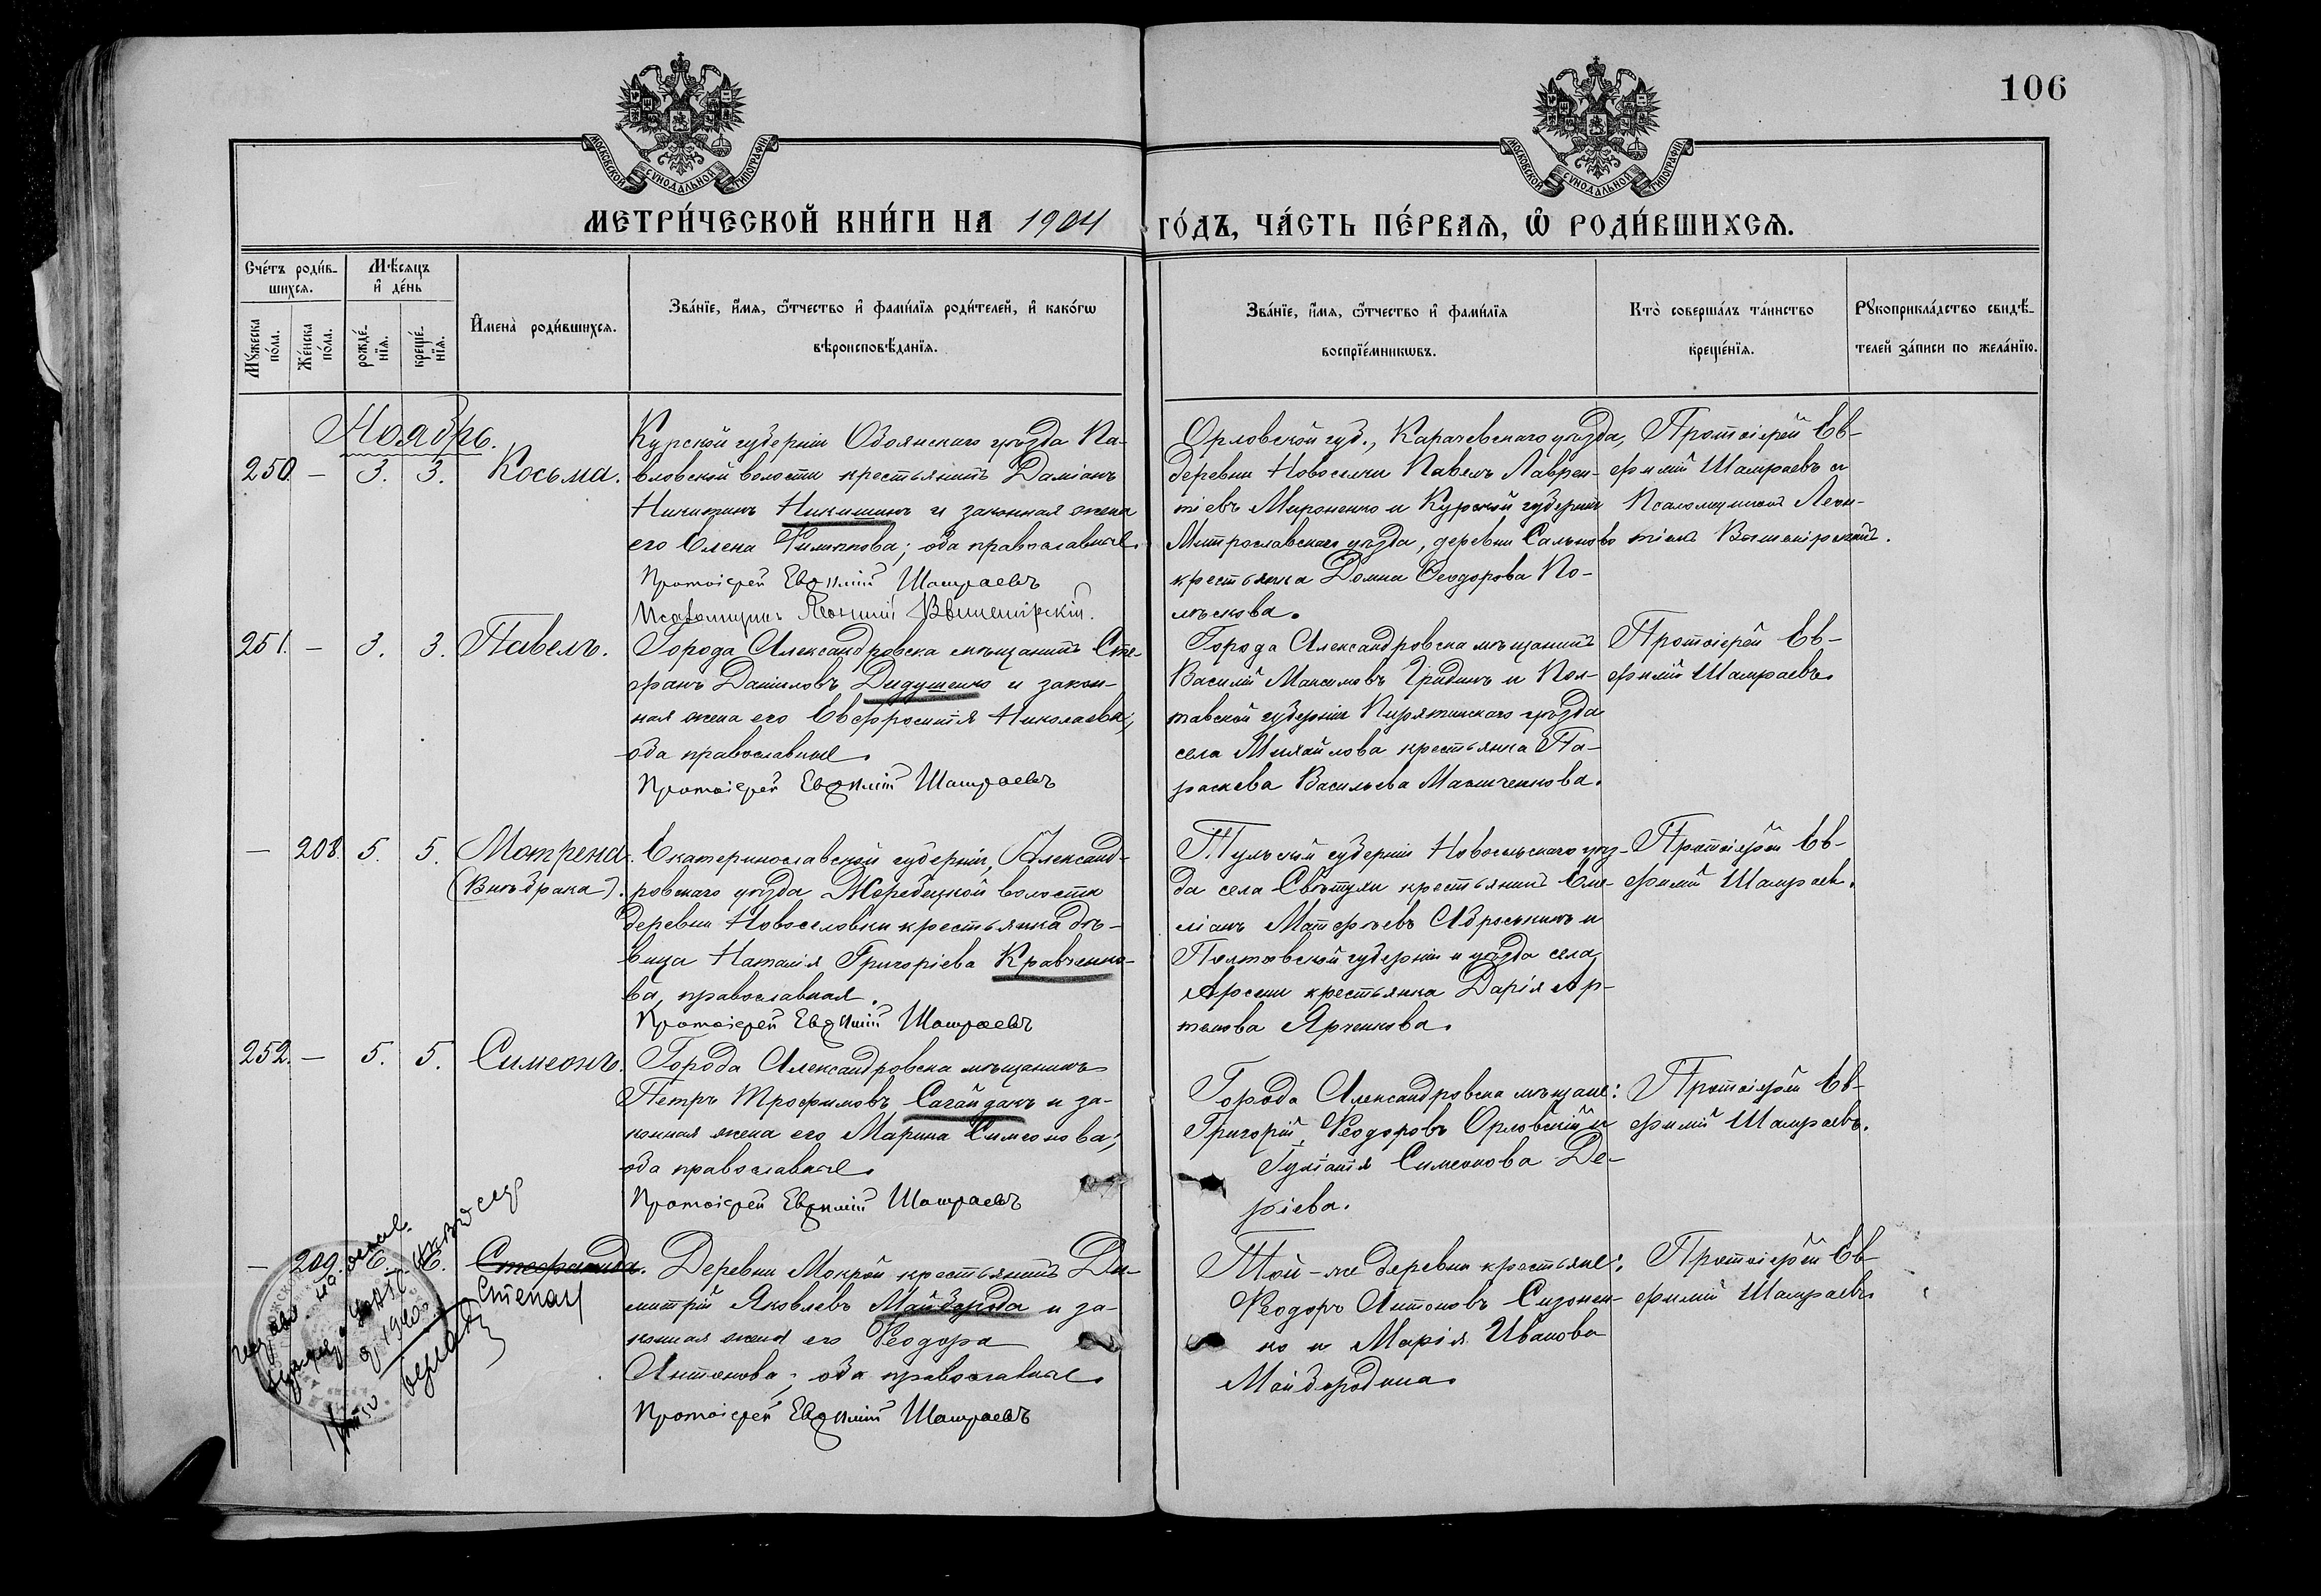 106
МОСКОВСКОЙ СУНОДАЛЬНОЙ ТИПОГРАФІИ
МОСКОВСКОЙ СУНОДАЛЬНОЙ ТИПОГРАФІИ
МЕТРИ́ЧЕСКОЙ КНИ́ГИ НА 1904 ГО́ДЪ, ЧА́СТЬ ПЕ́РВАѦ, Ѿ РОДИ́ВШИХСѦ.
Сче́тъ роди́в-
шихсѧ.
Мꙋ́жеска по́ла.
Же́нска по́ла.
Мѣ́сѧцъ и҆ де́нь
рожде́-нїѧ.
креще́-нїѧ.
И҆мена̀ роди́вшихсѧ.
Зва́нїе, и҆́мѧ, ѻ҆́тчество и҆ фами́лїѧ роди́телей, и҆ како́гѡ
вѣроисповѣ́данїѧ.
Зва́нїе, и҆́мѧ, ѻ҆́тчество и҆ фами́лїѧ
воспрїе́мникѡвъ.
Кто̀ соверша́лъ та́инство
креще́нїѧ.
Рꙋкоприкла́дство свидѣ́-
телей за́писи по жела́нїю.
Ноябрь.
250. — 3. 3. Косьма.
Курской губерніи Обоянскаго уѣзда Па-
вловской волости крестьянинъ Даміанъ
Никитинъ Никишинъ и законная жена
его Елена Филиппова; оба православные.
Протоіерей Евѳимій Шамраевъ
Псаломщикъ Леонтій Вышемірскій.
Орловской губ., Карачевскаго уѣзда,
деревни Новоселки Павелъ Лаврен-
тіевъ Мироненко и Курской губерніи
Митрославскаго уѣзда, деревни Сальково
крестьянка Домна Ѳеодорова По-
лѣскова.
Протоіерей Ев-
фимій Шамраевъ и
Псаломщикъ Леон-
тій Вышемірскій.
251. — 3. 3. Павелъ.
Города Александровска мѣщанинъ Сте-
фанъ Даніиловъ Дидушенко и закон-
ная жена его Евфросинія Николаева;
оба православные.
Протоіерей Евѳимій Шамраевъ
Города Александровска мѣщанинъ
Василій Максимовъ Гридинъ и Пол-
тавской губерніи Пирятинскаго уѣзда
села Михайлова крестьянка Па-
раскева Васильева
Протоіерей Ев-
фимій Шамраевъ.
— 208. 5. 5. Мотрена.
(Внѣ брака).
Екатеринославской губерніи, Александ-
ровскаго уѣзда Жеребецкой волости
деревни Новоселовки крестьянка дѣ-
вица Наталія Григоріева Кравченко-
ва, православная.
Протоіерей Евѳимій Шамраевъ
Тульской губерніи Новосильскаго уѣз-
да села крестьянинъ Еме-
ліанъ Матѳеевъ Аброськинъ и
Полтавской губерніи и уѣзда села
крестьянка Дарія Ар-
темова Ярченкова.
Протоіерей Ев-
фимій Шамраев.
252. — 5. 5. Симеонъ.
Города Александровска мѣщанинъ
Петръ Трофимовъ Сагайдакъ и за-
конная жена его Марина Симеонова;
оба православные.
Протоіерей Евѳимій Шамраевъ
Города Александровска мѣщане:
Григорій Ѳеодоровъ Орловскій и
Гуліанія Симеонова Де-
ріева.
Протоіерей Ев-
фимій Шамраевъ.
— 209. 6. 6. Стефанида.
Степан
Деревни Мокрой крестьянинъ Ди-
митрій Яковлевъ Майборода и за-
конная жена его Ѳеодора
Антонова; оба православные.
Протоіерей Евѳимій Шамраевъ
Той-же деревни крестьяне:
Ѳеодоръ Антоновъ Сизонен-
ко и Марія Иванова
Майбородина.
Протоіерей Ев-
фимій Шамраевъ.